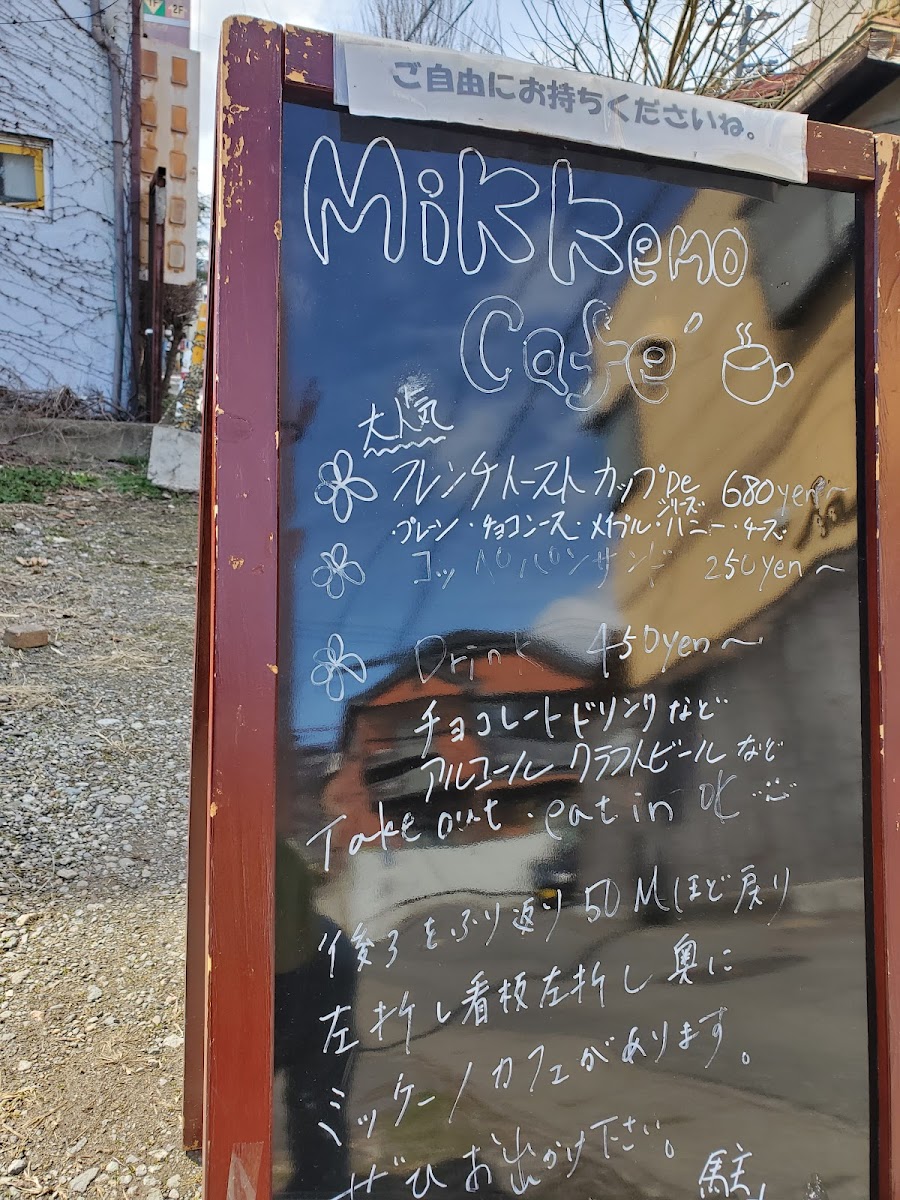 1F 2F
ご自由にお持ちくださいね。
Mikkeno
Cafe'
大人気
フレンチトーストカップDe 680yen～
シリーズ
プレーン・チョコソース・メイプル・ハニー・チーズ
コッペパンサンド 250yen～
Drink 450yen～
チョコレートドリンクなど
アルコール クラフトビールなど
Take out・eat in OK
後ろをふり返り50Mほど戻り
左折し看板左折し奥に
ミッケーノカフェがあります。
ぜひお出かけ下さい。
駐